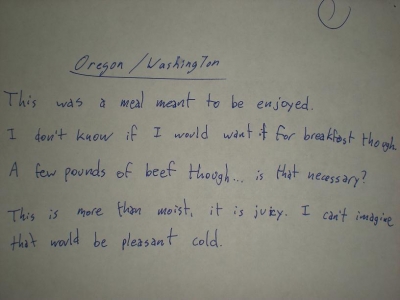 Oregon / Washington
This was a meal meant to be enjoyed.
I don't know if I would want it for breakfast though.
A few pounds of beef though... is that necessary?
This is more than moist, it is juicy. I can't imagine
that would be pleasant cold.